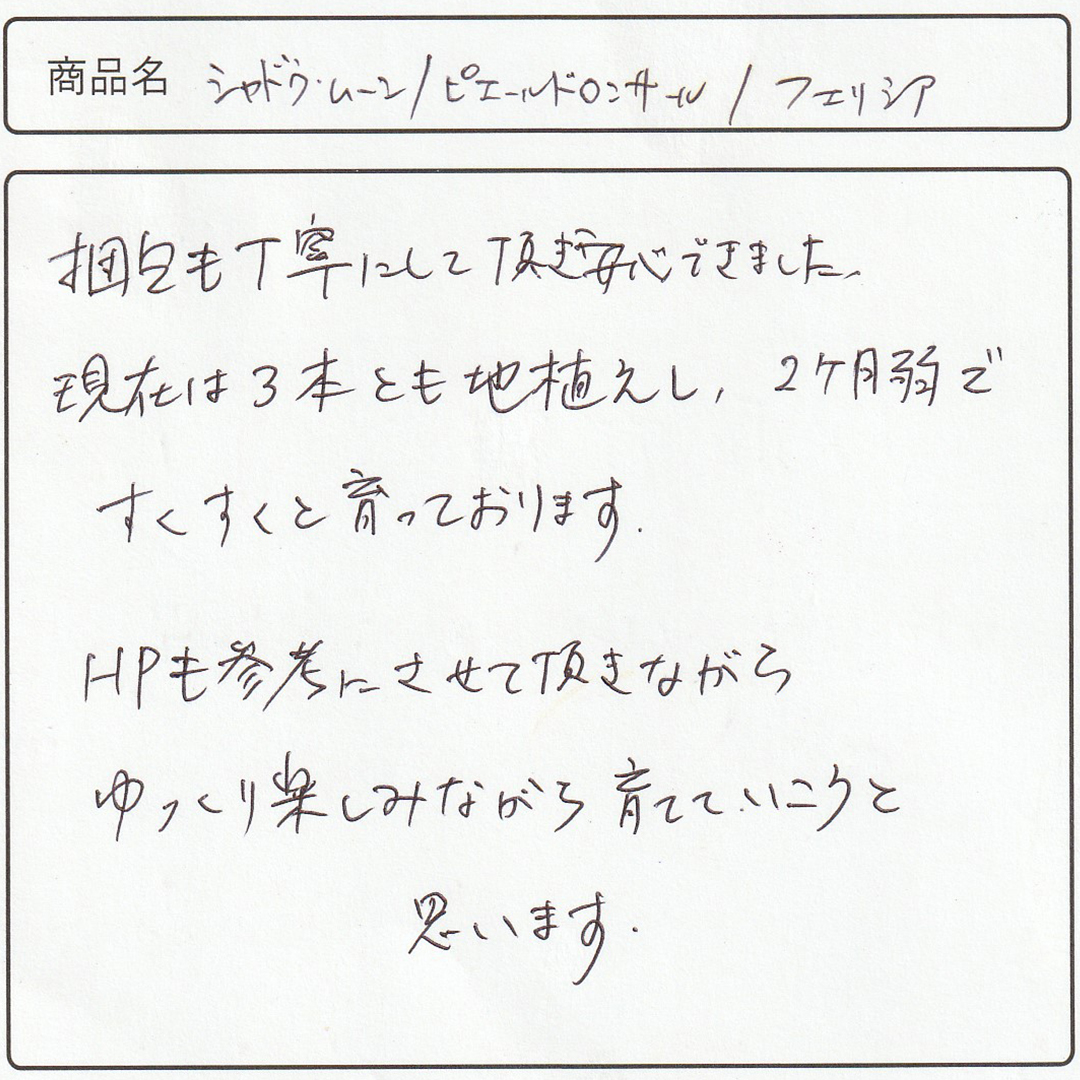 商品名 シャドウ・ムーン/ピエールドロンサール/フェリシア
捆包も丁寧にして頂き安心できました。
現在は3本とも地植えし、2ケ月弱で
すくすくと育っております.
HPも参考にさせて頂きながら
ゆっくり楽しみながら育てていこうと
思います.